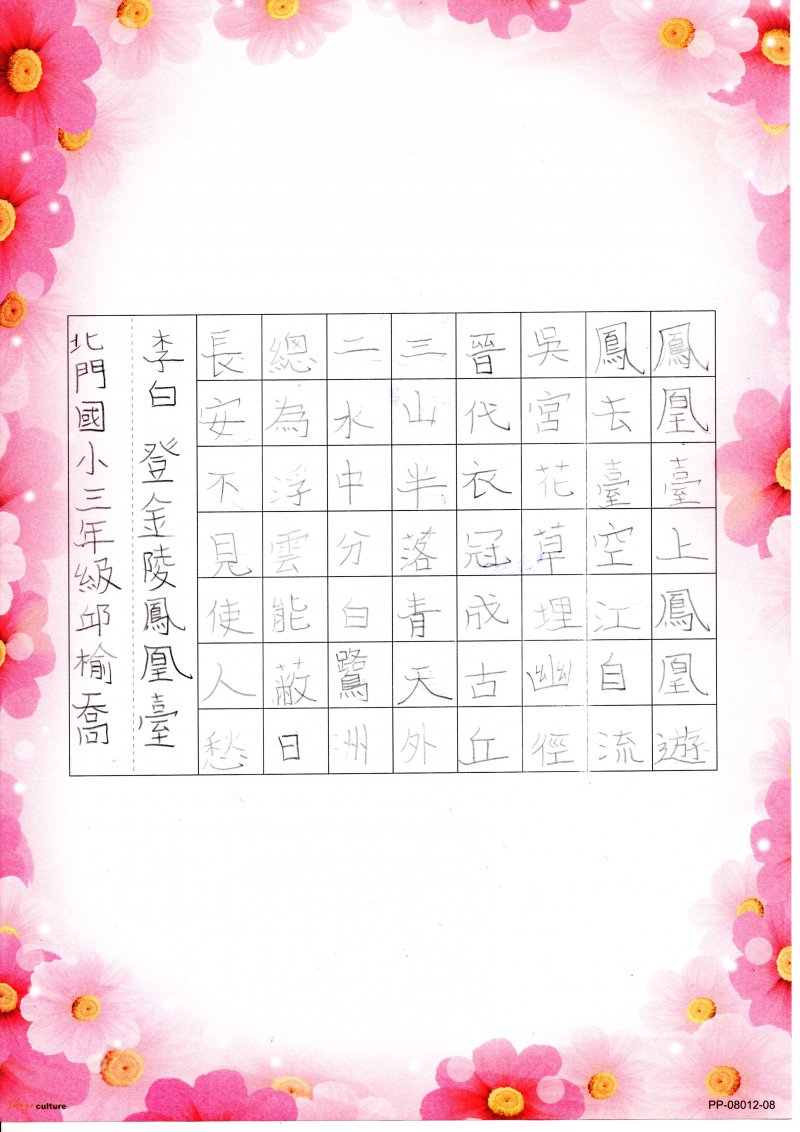 鳳凰臺上鳳凰遊
鳳去臺空江自流
吳宮花草埋幽徑
晉代衣冠成古丘
三山半落青天外
二水中分白鷺洲
總為浮雲能蔽日
長安不見使人愁
李白 登金陵鳳凰臺
北門國小三年級邱榆喬
culture
PP-08012-08